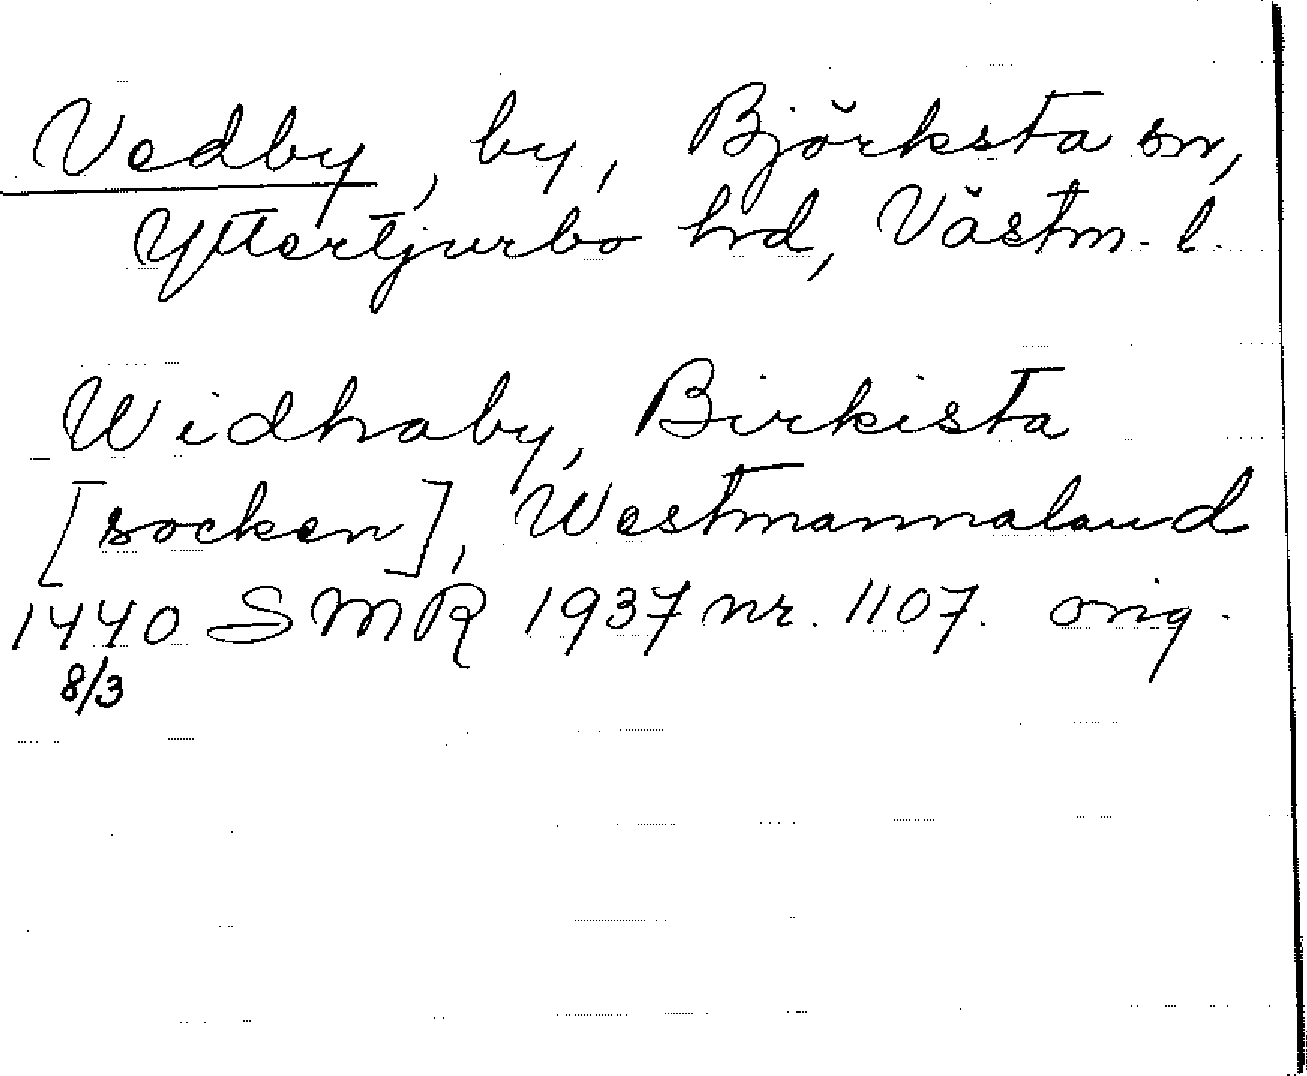 Vedby, by, Björksta sn,
Yttertjurbo hd, Västm. l.
Widhaby, Birkista
[socken], Westmannaland
1440 SMR 1937 nr. 1107. orig.
8/3